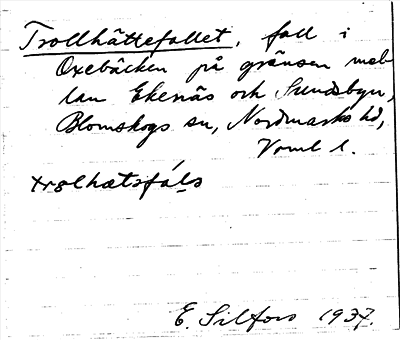 Trollhättefallet, fall i
Oxebäcken på gränsen mel-
lan Ekenäs och Sundsbyn,
Blomskogs sn, Nordmarks hd,
Vrml l.
trolhætəfáḷə
E. Silfors 1937.